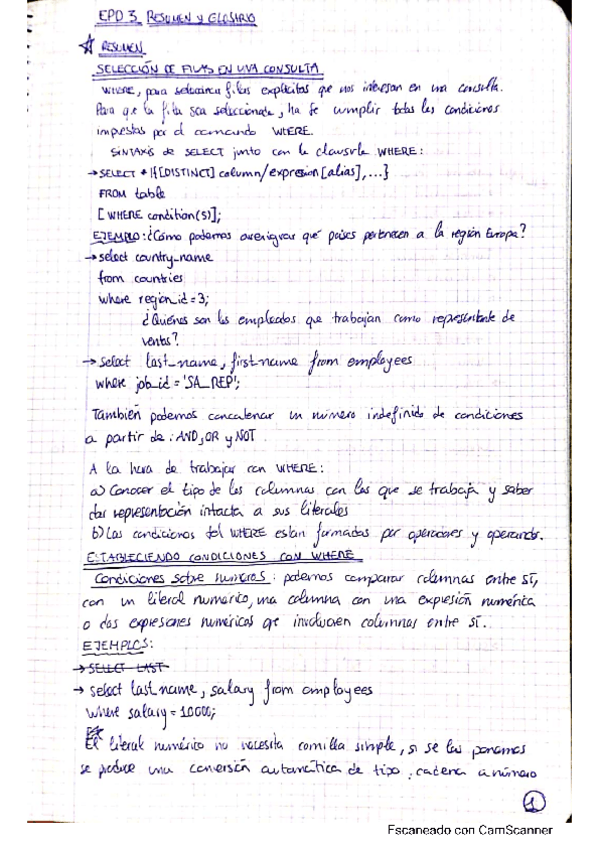 EPD 3. RESUMEN Y GLOSARIO
RESUMEN
SELECCIÓN DE FILAS EN UNA CONSULTA
WHERE, para seleccionar filas explícitas que nos interesan en una consulta.
Para que la fila sea seleccionada, ha de cumplir todas las condiciones
impuestas por el comando WHERE.
SINTAXIS de SELECT junto con la clausula WHERE:
→SELECT *|{[DISTINCT] column/expresion[alias],...}
FROM table
[WHERE condition(s)];
EJEMPLO: ¿Cómo podemos averiguar qué países pertenecen a la región Europa?
→select country_name
from countries
where region_id=3;
¿Quiénes son los empleados que trabajan como representante de
ventas?
→select last_name, first_name from employees
where job_id = 'SA_REP';
También podemos concatenar un número indefinido de condiciones
a partir de: AND, OR y NOT.
A la hora de trabajar con WHERE:
a) Conocer el tipo de las columnas con las que se trabaja y saber
dar representación intacta a sus literales
b) Las condiciones del WHERE están formadas por operadores y operandos.
ESTABLECIENDO CONDICIONES CON WHERE
Condiciones sobre numeros: podemos comparar columnas entre sí,
con un literal numérico, una columna con una expresión numérica
o dos expresiones numéricas que involucren columnas entre sí.
EJEMPLOS:
→SELECT LAST
→ select last_name, salary from employees
where salary = 10000;
El literal numérico no necesita comilla simple, si se las ponemos
se produce una conversión automática de tipo: cadena a número
1
Escaneado con CamScanner